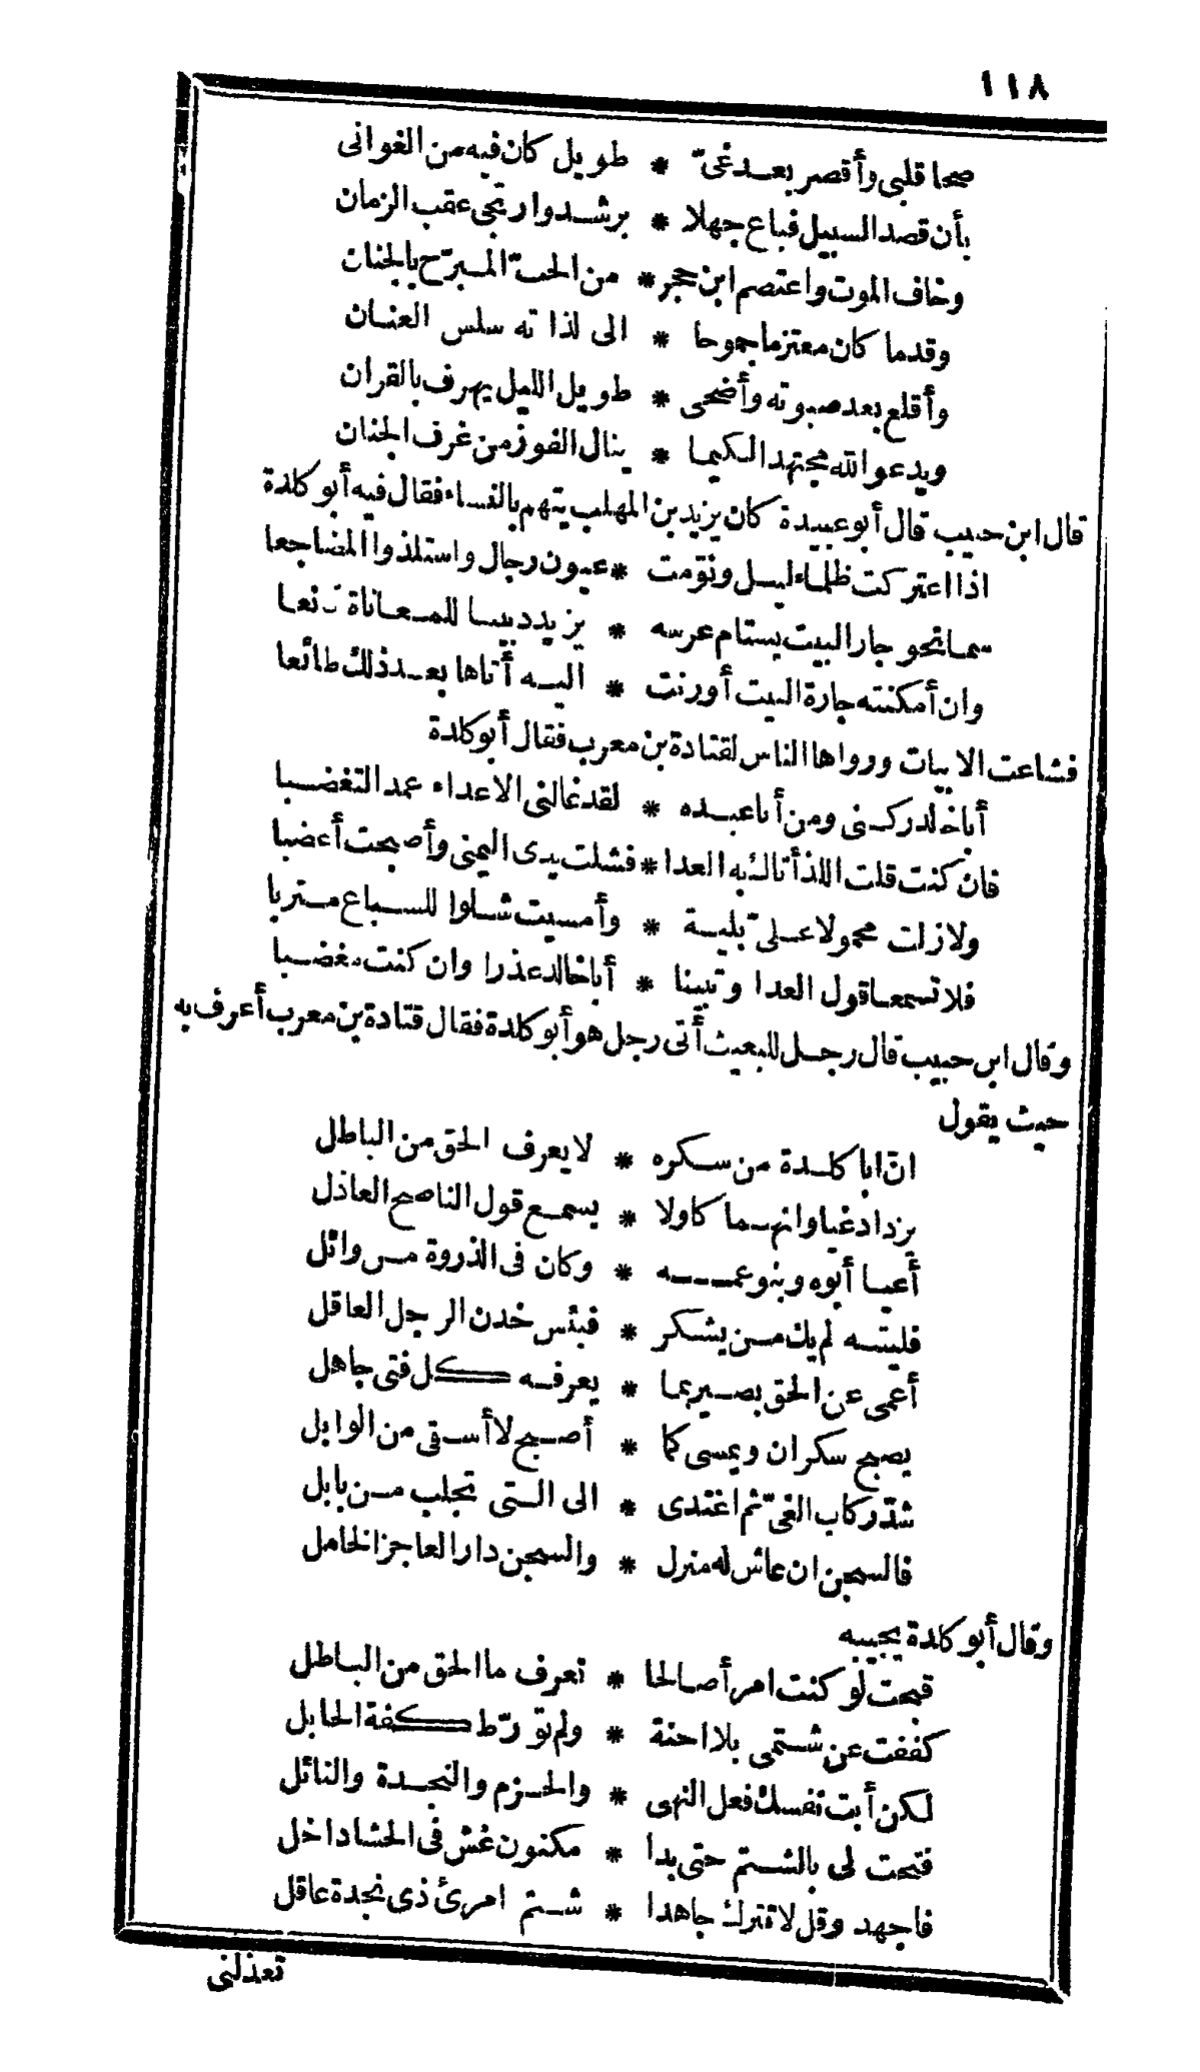 ١١٨
صحا قلبى وأقصر بعد غىّ * طويل كان فيه من الغوانى
بأن قصد السبيل فباع جهلا * برشد وارتجى عقب الزمان
وخاف الموت واعتصم ابن حجر * من الحبّ المبرّح بالجنان
وقدما كان معتزما جموحا * الى لذاته سلس العنان
وأقلع بعد صبوته وأضحى * طويل الليل يهرف بالقران
ويدعو الله مجتهدا لكيما * ينال الفوز من غرف الجنان
قال ابن حبيب قال أبو عبيدة كان يزيد بن المهلب يتهم بالنساء فقال فيه أبو كلدة
اذا اعتركت ظلماء ليل ونوّمت * عيون رجال واستلذوا المضاجعا
سما نحو جار البيت يستام عرسه * يزيد دبيبا للمعاناة
وان أمكنته جارة البيت أو رنت * اليه أتاها بعد ذلك طائعا
فشاعت الابيات ورواها الناس لقتادة بن معرب فقال أبو كلدة
أبا خالد ركنى ومن أنا عبده * لقد غالنى الاعداء عمدا لتغضبا
فان كنت قلت اللذ أتاك به العدا * فشلت يدى اليمنى وأصبحت أعضبا
ولا زلت محمولا علىّ بلية * وأمسيت شلوا للسباع متربا
فلا تسمعا قول العدا وتبينا * أبا خالد عذرا وان كنت مغضبا
وقال ابن حبيب قال رجل للبعيث أتى رجل هو أبو كلدة فقال قتادة بن معرب أعرف به
حيث يقول
انّ ابا كلدة من سكره * لا يعرف الحق من الباطل
يزداد غيا وانهما كا ولا * يسمع قول الناصح العاذل
أعيا أبوه وبنو عمه * وكان فى الذروة من وائل
فليته لم يك من يشكر * فبئس خدن الرجل العاقل
أعمى عن الحق بصير بما * يعرفه كل فتى جاهل
يصبح سكران ويمسى كما * أصبح لا أسقى من الوابل
شدّ ركاب الغىّ ثم اغتدى * الى التى تجلب من بابل
فالسجن ان عاش له منزل * والسجن دار العاجز الخامل
وقال أبو كلدة يجيبه
قبحت لو كنت امرأ صالحا * تعرف ما الحق من الباطل
كففت عن شتمى بلا احنة * ولم تورّط كفة الحابل
لكن أبت نفسك فعل النهى * والحزم والنجدة والنائل
فتحت لى بالشتم حتى بدا * مكنون غش فى الحشا داخل
فاجهد وقل لا تترك جاهدا * شتم امرئ ذى نجدة عاقل
تعذلنى